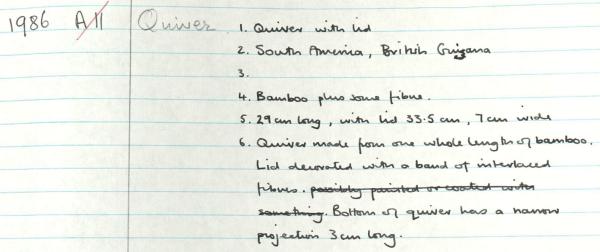 1986 A11 Quiver 1. Quiver with lid
2. South America, British Guyana
3.
4. Bamboo plus some fibre.
5. 29cm long, with lid 33.5 cm, 7cm wide
6. Quiver made from one whole length of bamboo.
Lid decorated with a band of interlaced
fibres. possibly painted or coated with
something. Bottom of quiver has a narrow
projection 3cm long.